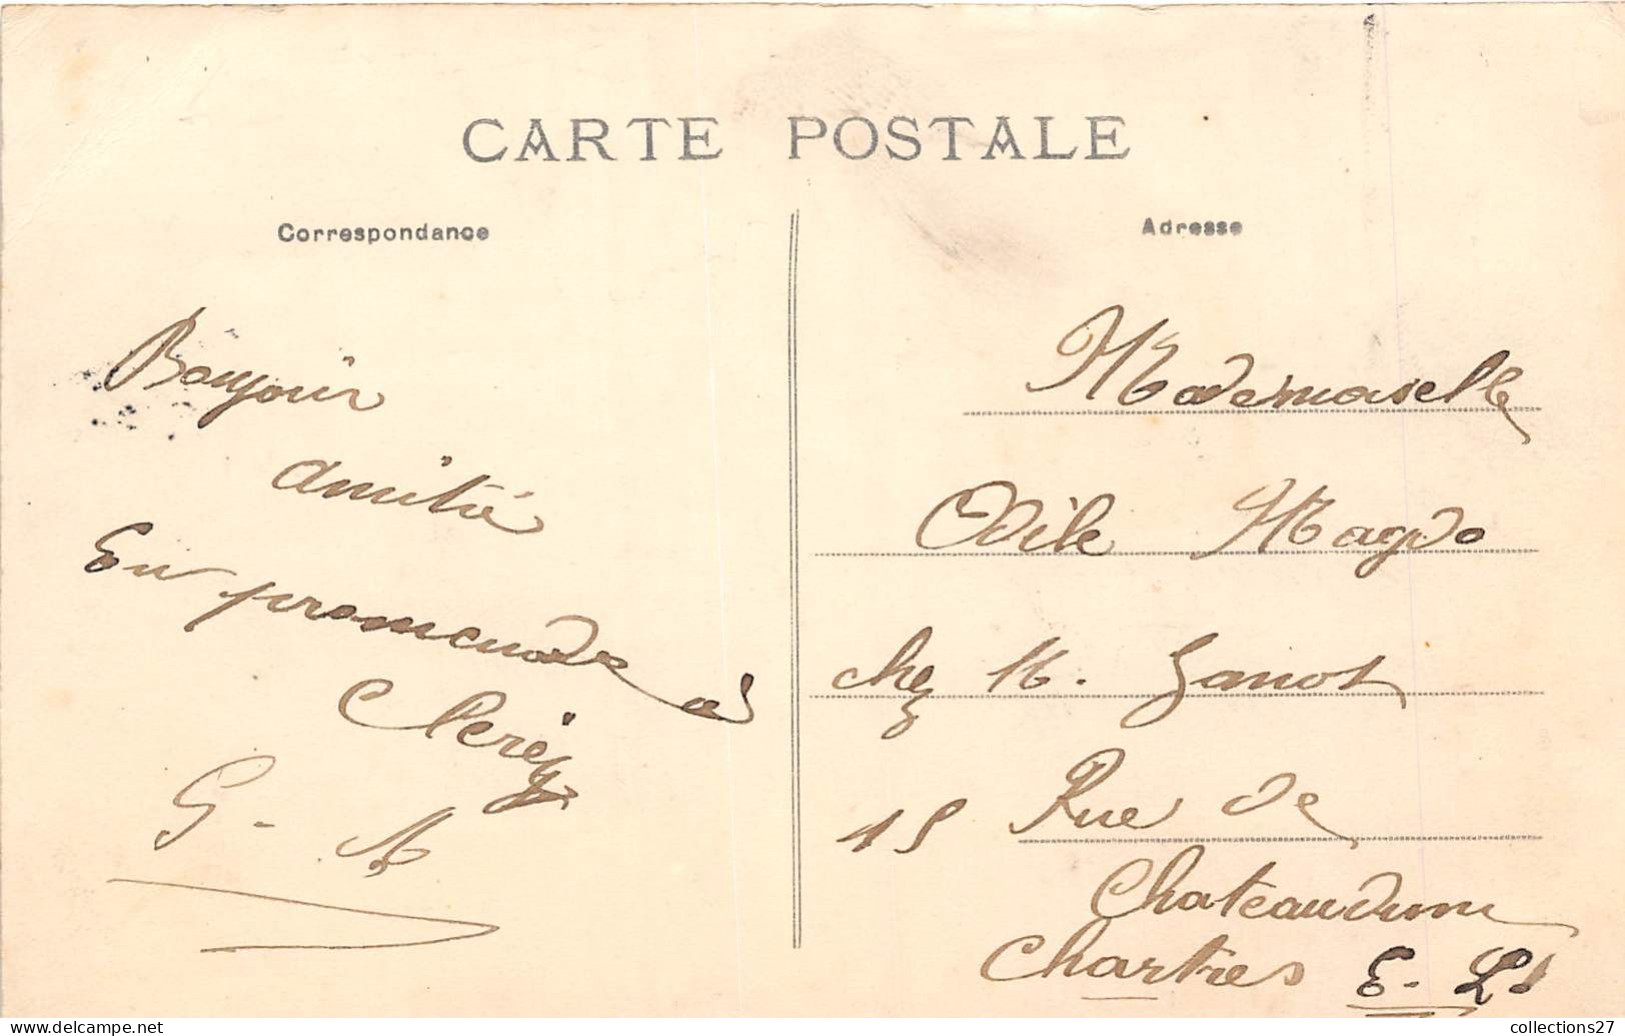 CARTE POSTALE
Correspondance
Bonjour
amitié
En promenade à
Cleréy
G - M
Adresse
Mademoiselle
Odile Magdo
chez M. Ganot
15 Rue de
Chateaudun
Chartres E. L.
collections27